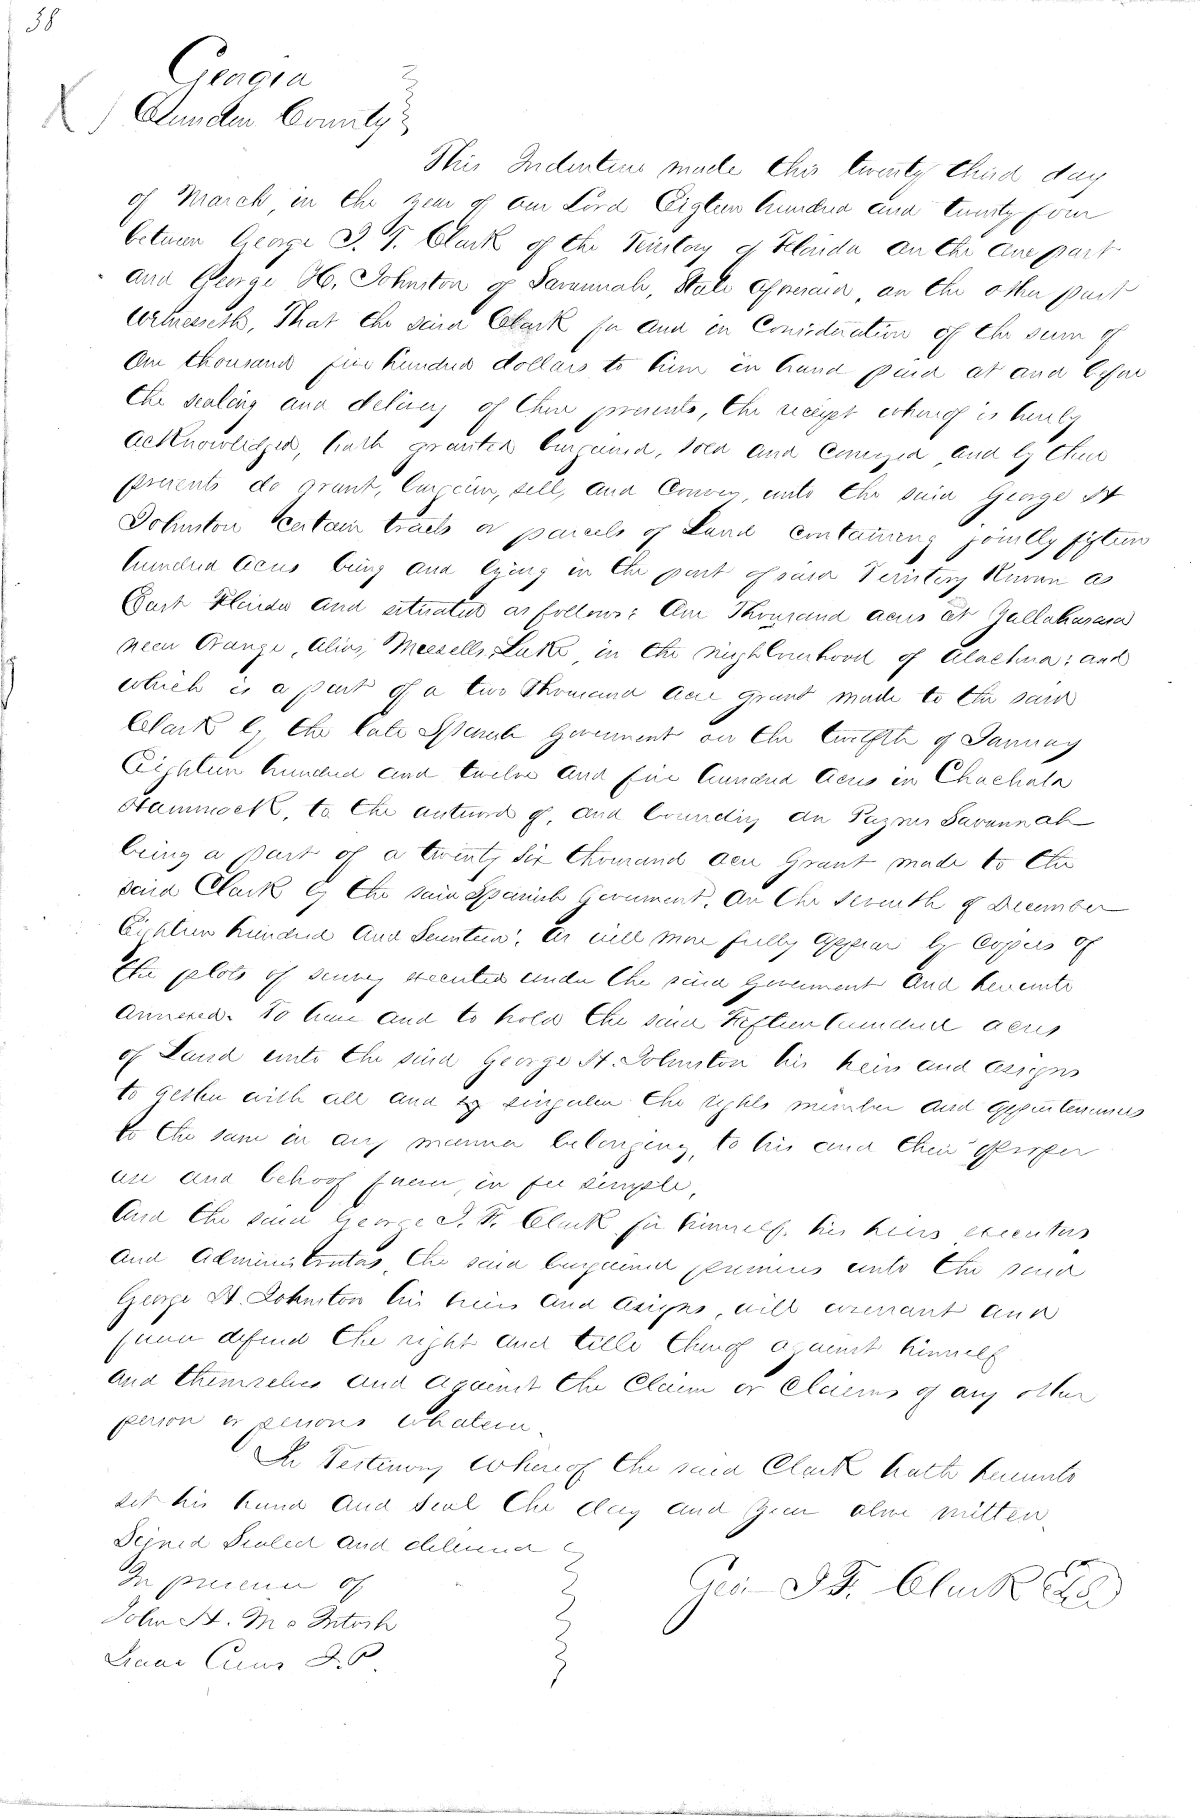 38
Georgia
Camden County
This Indenture made this twenty third day
of March, in the year of our Lord Eigteen hundred and twenty four
between George J. F. Clark of the Teritory of Florida on the one part
and George H. Johnston of Savannah, State aforesaid, on the other part
Witnesseth, That the said Clark for and in Consideration of the sum of
One thousand five hundred dollars to him in hand paid at and before
the sealing and delivery of these presents, the receipt whereof is hereby
acknowledged, hath granted bargained, sold and conveyed, and by these
presents do grant, bargain, sell, and Convey, unto the said George H
Johnston certain tracts or parcels of Land containing jointly fifteen
hundred acres being and lying in the part of said Teritory Known as
East Florida and situated as follows: One Thousand acres at
near Orange, alias, Lake, in the neighbourhood of Alachua: and
which is a part of a two Thousand acre grant made to the said
Clark by the late Spanish Goverment on the twelfth of January
Eighteen hundred and twelve and five hundred acres in Chachala
Hammock, to the of, and bounding on Paynes Savannah
being a part of a twenty six thousand acre Grant made to the
said Clark by the said Spanish Goverment. On the seventh of December
Eighteen hundred and Seventeen: as will more fully appear by Copies of
the plots of survey executed under the said Goverment and hereunto
annexed. To have and to hold the said Fifteen hundred acres
of Land unto the said George H. Johnston his heirs and assigns
to gether with all and singular the rights member and appurtenances
to the same in any manner belonging, to his and their Proper
use and behoof forever, in fee simple,
And the said George J. F. Clark for himself, his heirs executors
and Administrators, the said bargained premises unto the said
George H. Johnston his heirs and asigns, will warrant and
forever defend the right and title thereof against himself
and themselves and against the Claim or Claims of any other
person or persons whatever.
In Testimony Whereof the said Clark hath hereunto
set his hand and seal the day and year above written.
Signed Sealed and delivered
In presence of
Geo. J F. Clark LS
John H. McIntosh
Isaac Crews J. P.